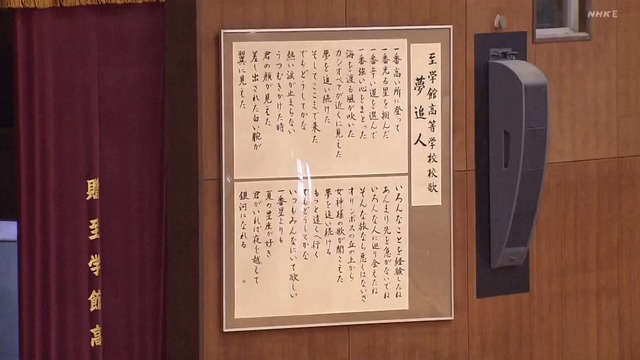 NHKE
至学館高等学校校歌
夢追人
一番高い所に登って
一番光る星を掴んだ
一番辛い道を選んで
一番強い心をまとった
海を渡る風が吹いた
カシオペアが近くに見えた
夢を追い続けた
そしてここまで来た
でもどうしてかな
熱い涙が止まらない
うつむきかけた時
君の顔が見えた
差し出された白い腕が
翼に見えた
いろんなことを経験したね
あんまり先を急がないでね
いろんな人に巡り会えたね
そんな旅なら悪くはないさ
オリンポスの丘の上から
女神様の歌が聞こえた
夢を追い続ける
もっと遠くへ行く
でもどうしてかな
いつもみんなにいて欲しい
一番星よりも
夏の星座が好き
君がいれば夜を越えて
銀河になれる
贈至学館高